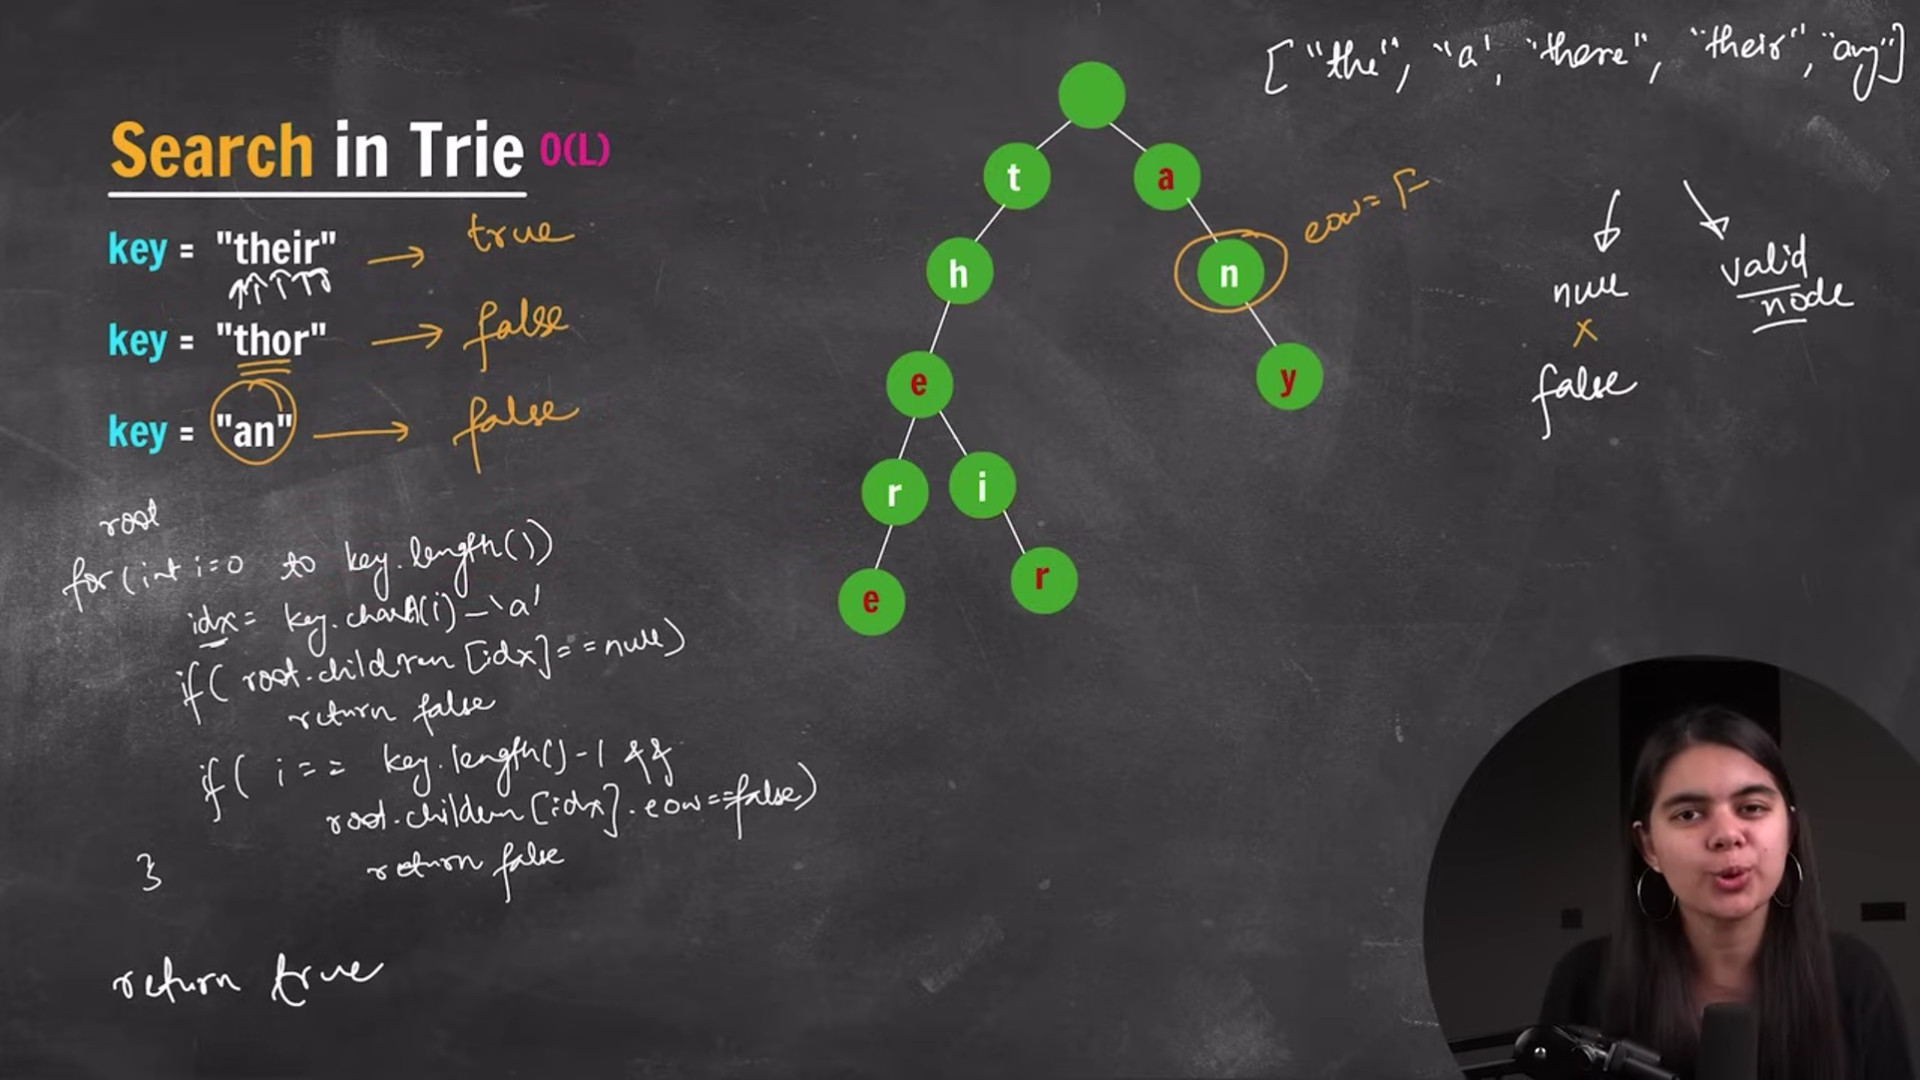 ["the", "a", "there", "their", "any"]
Search in Trie O(L)
key = "their" → true
key = "thor" → false
key = "an" → false
root
for(int i=0 to key.length())
idx = key.charAt(i)-'a'
if( root.children[idx]==null)
return false
if( i== key.length()-1 &&
root.children[idx].eow==false)
return false
}
return true
t
a
h
n
eow=F
e
y
r
i
e
r
null
x
false
valid
node